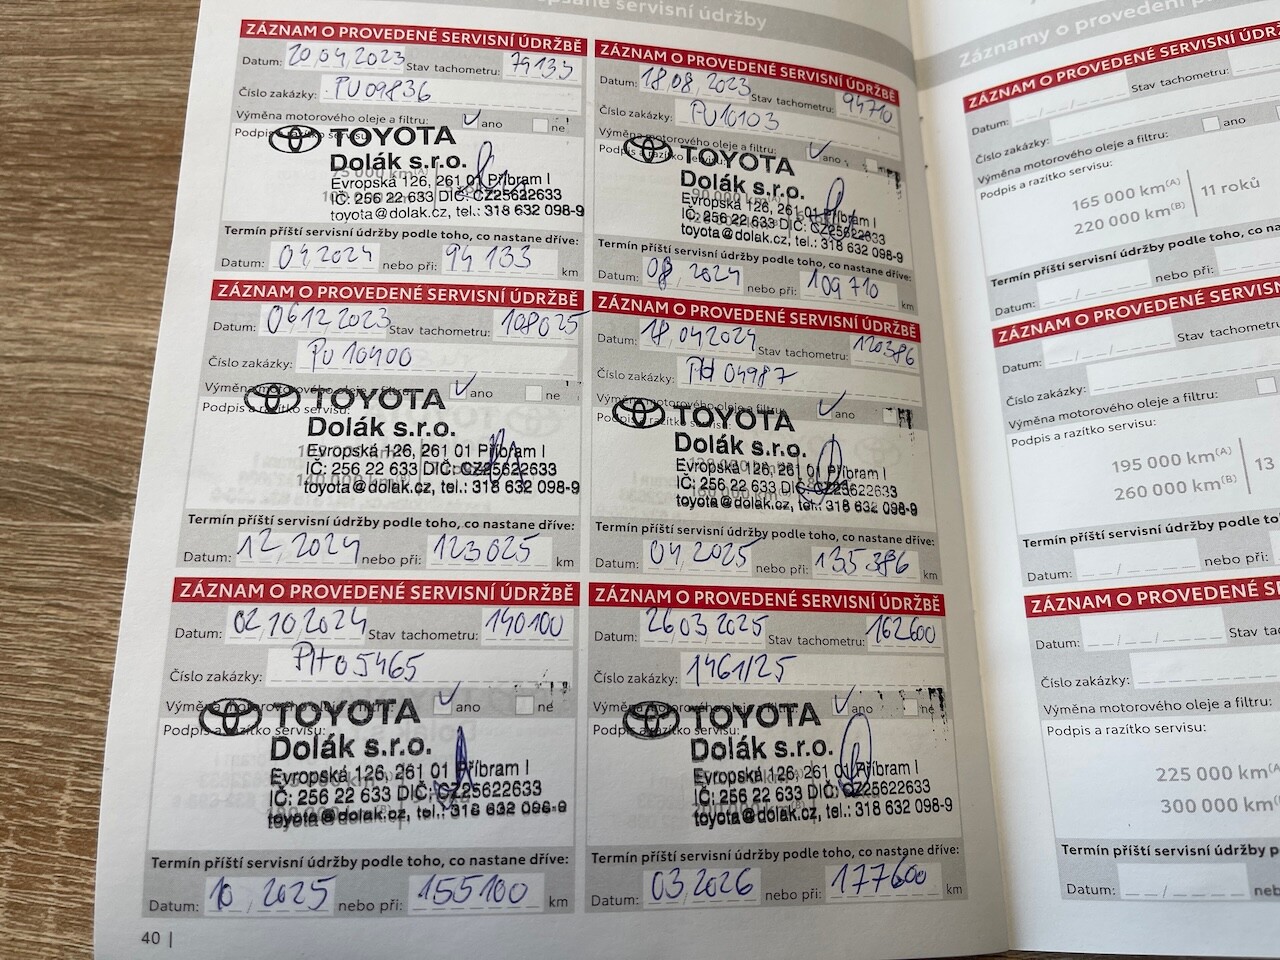 psané servisní údržby
ZÁZNAM O PROVEDENÉ SERVISNÍ ÚDRŽBĚ
Datum: 20 04 2023 Stav tachometru: 79133
Číslo zakázky: PU09836
Výměna motorového oleje a filtru: ano ne
Podpis a razítko servisu:
TOYOTA
Dolák s.r.o.
75 000 km(A)
Evropská 126, 261 01 Příbram I
IČ: 256 22 633 DIČ: CZ25622633
toyota@dolak.cz, tel.: 318 632 098-9
Termín příští servisní údržby podle toho, co nastane dříve:
Datum: 04 2024 nebo při: 94 133 km
ZÁZNAM O PROVEDENÉ SERVISNÍ ÚDRŽBĚ
Datum: 18 08 2023 Stav tachometru: 94710
Číslo zakázky: PU10103
Výměna motorového oleje a filtru: ano
Podpis a razítko servisu:
TOYOTA
Dolák s.r.o.
Evropská 126, 261 01 Příbram I
IČ: 256 22 633 DIČ: CZ25622633
toyota@dolak.cz, tel.: 318 632 098-9
Termín příští servisní údržby podle toho, co nastane dříve:
Datum: 08 2024 nebo při: 109 710 km
ZÁZNAM O PROVEDENÉ SERVISNÍ ÚDRŽBĚ
Datum: 06 12 2023 Stav tachometru: 108025
Číslo zakázky: PU 10400
Výměna motorového oleje a filtru: ano ne
Podpis a razítko servisu:
TOYOTA
Dolák s.r.o.
Evropská 126, 261 01 Příbram I
IČ: 256 22 633 DIČ: CZ25622633
toyota@dolak.cz, tel.: 318 632 098-9
Termín příští servisní údržby podle toho, co nastane dříve:
Datum: 12 2024 nebo při: 123025 km
ZÁZNAM O PROVEDENÉ SERVISNÍ ÚDRŽBĚ
Datum: 18 04 2024 Stav tachometru: 120386
Číslo zakázky: 04987
Výměna motorového oleje a filtru: ano
Podpis a razítko servisu:
TOYOTA
Dolák s.r.o.
Evropská 126, 261 01 Příbram I
IČ: 256 22 633 DIČ: CZ25622633
toyota@dolak.cz, tel.: 318 632 098-9
Termín příští servisní údržby podle toho, co nastane dříve:
Datum: 04 2025 nebo při: 135 386 km
ZÁZNAM O PROVEDENÉ SERVISNÍ ÚDRŽBĚ
Datum: 02 10 2024 Stav tachometru: 140100
Číslo zakázky: PH05465
Výměna motorového oleje a filtru: ano ne
Podpis a razítko servisu:
TOYOTA
Dolák s.r.o.
Evropská 126, 261 01 Příbram I
IČ: 256 22 633 DIČ: CZ25622633
toyota@dolak.cz, tel.: 318 632 098-9
Termín příští servisní údržby podle toho, co nastane dříve:
Datum: 10 2025 nebo při: 155100 km
ZÁZNAM O PROVEDENÉ SERVISNÍ ÚDRŽBĚ
Datum: 26 03 2025 Stav tachometru: 162600
Číslo zakázky: 1461/25
Výměna motorového oleje a filtru: ano ne
Podpis a razítko servisu:
TOYOTA
Dolák s.r.o.
Evropská 126, 261 01 Příbram I
IČ: 256 22 633 DIČ: CZ25622633
toyota@dolak.cz, tel.: 318 632 098-9
Termín příští servisní údržby podle toho, co nastane dříve:
Datum: 03 2026 nebo při: 177600 km
40 |
Záznamy o provedení p
ZÁZNAM O PROVEDENÉ SERVISN
Datum: / / Stav tachometru:
Číslo zakázky:
Výměna motorového oleje a filtru: ano
Podpis a razítko servisu:
165 000 km(A) 11 roků
220 000 km(B)
Termín příští servisní údržby podle toho, co
Datum: / nebo při:
ZÁZNAM O PROVEDENÉ SERVISN
Datum: / / Stav tachometru
Číslo zakázky:
Výměna motorového oleje a filtru:
Podpis a razítko servisu:
195 000 km(A) 13
260 000 km(B)
Termín příští servisní údržby podle to
Datum: / nebo při:
ZÁZNAM O PROVEDENÉ S
Datum: / / Stav ta
Číslo zakázky:
Výměna motorového oleje a filtru:
Podpis a razítko servisu:
225 000 km(A)
300 000 km(B)
Termín příští servisní údržby p
Datum: / neb